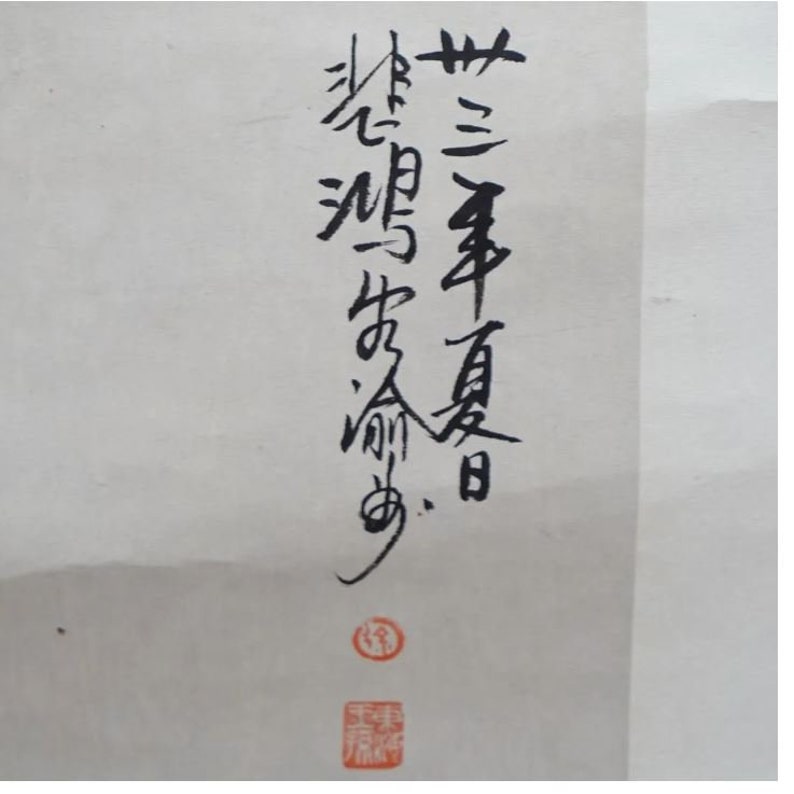 卅三年夏日
悲鴻客渝州
徐
東海王孫